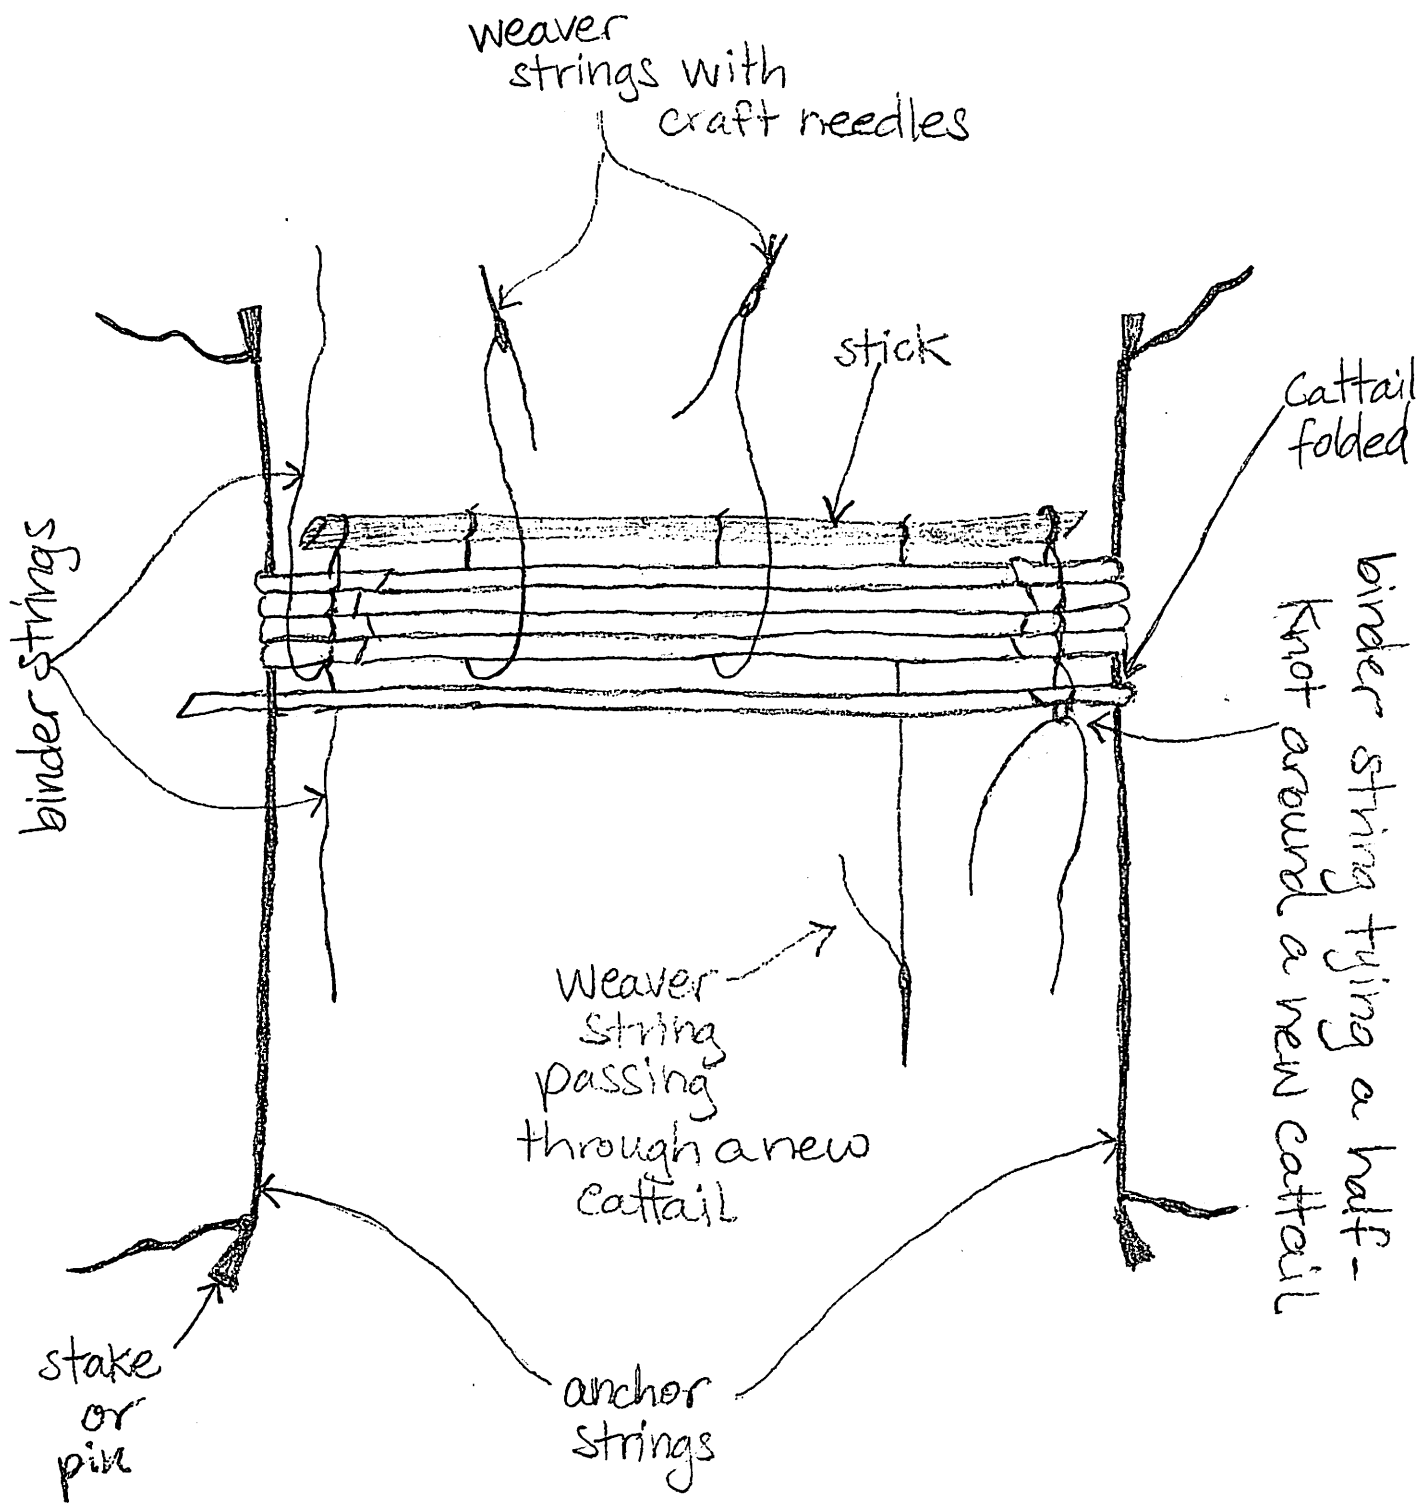 weaver
strings with
craft needles
stick
cattail
folded
binder strings
binder string tying a half-
knot around a new cattail
weaver
string
passing
through a new
cattail
anchor
strings
stake
or
pin